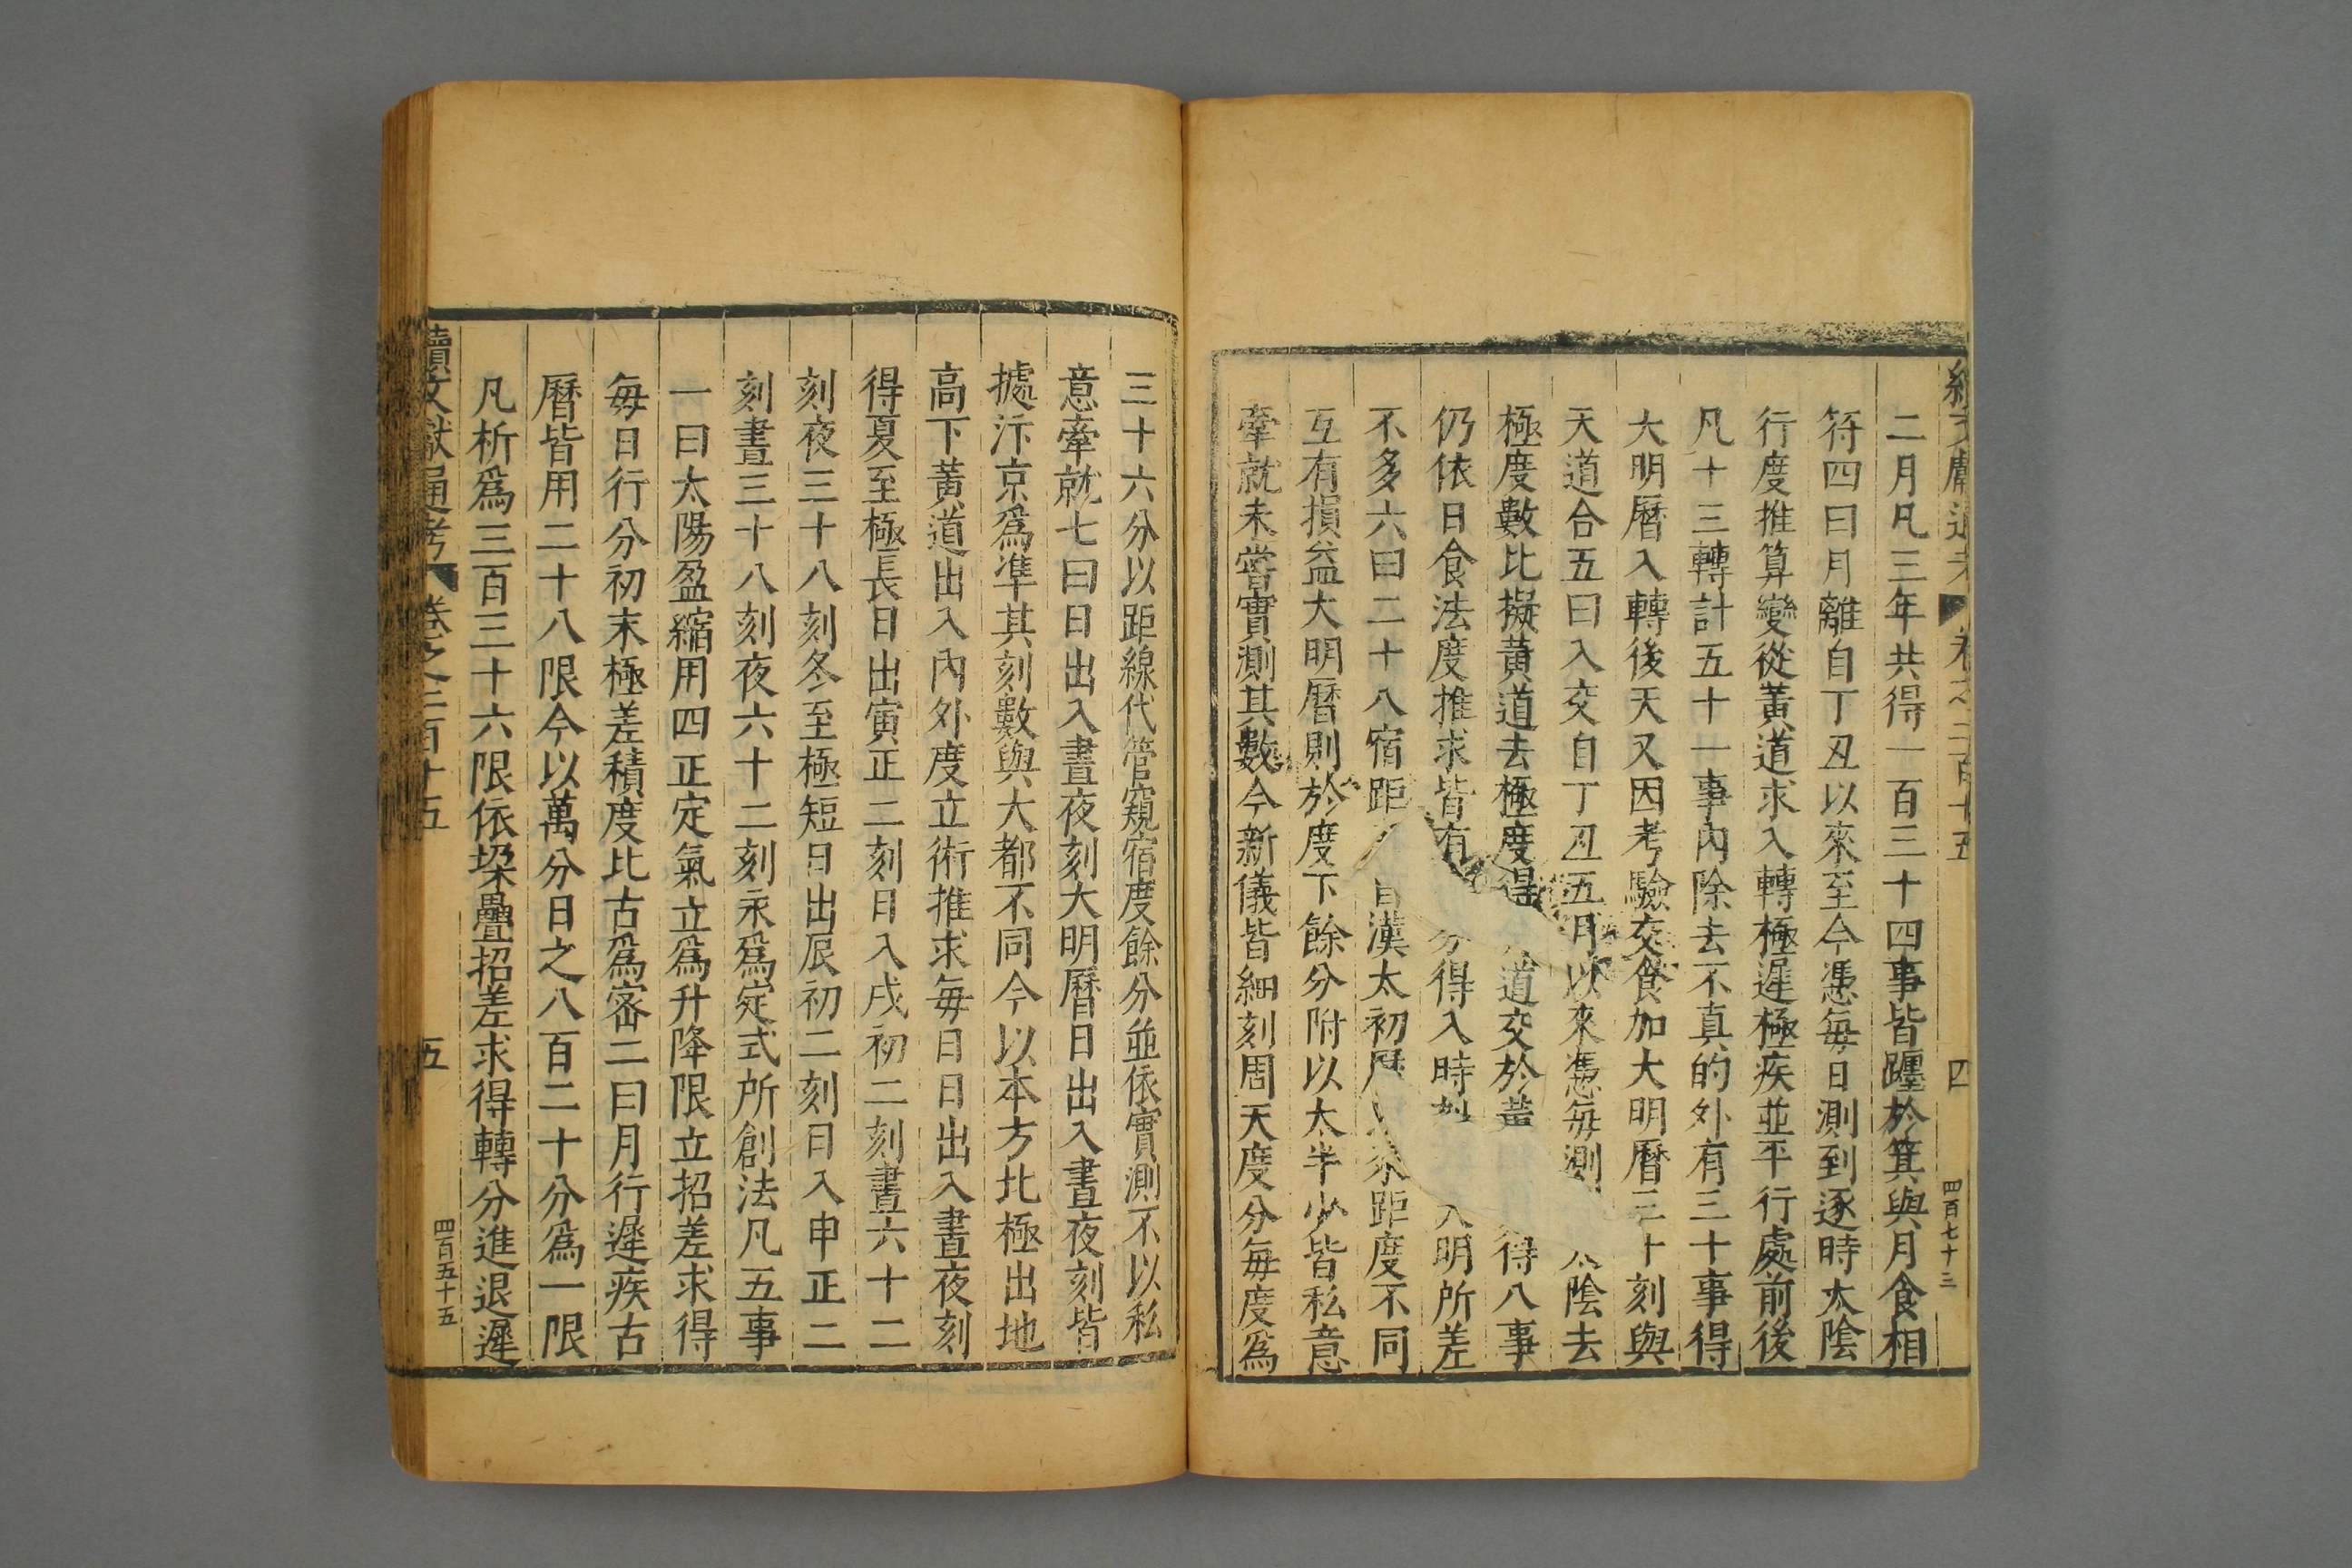 二月凡三年共得一百三十四事皆躔於箕與月食相
符四曰月離自丁丑以來至今憑每日測到逐時太陰
行度推算變從黃道求入轉極遲極疾並平行處前後
凡十三轉計五十一事內除去不真的外有三十事得
大明曆入轉後天又因考驗交食加大明曆三十刻與
天道合五曰入交自丁丑五月以來憑每測 陰去
極度數比擬黃道去極度得 道交於黃 得八事
仍依日食法度推求皆有 分得入時刻 明所差
不多六曰二十八宿距 自漢太初曆 來距度不同
互有損益大明曆則於度下餘分附以太半少皆私意
牽就未嘗實測其數今新儀皆細刻周天度分每度為
三十六分以距線代管窺宿度餘分並依實測不以私
意牽就七曰日出入晝夜刻大明曆日出入晝夜刻皆
據汴京爲準其刻數與大都不同今以本方北極出地
高下黃道出入內外度立術推求每日日出入晝夜刻
得夏至極長日出寅正二刻日入戌初二刻晝六十二
刻夜三十八刻冬至極短日出辰初二刻日入申正二
刻晝三十八刻夜六十二刻永爲定式所創法凡五事
一曰太陽盈縮用四正定氣立爲升降限立招差求得
每日行分初末極差積度比古爲密二曰月行遲疾古
曆皆用二十八限今以萬分日之八百二十分爲一限
凡析爲三百三十六限依垛疊招差求得轉分進退遲
續文獻通考 卷之二百十五 五 四百五十五
四 四百七十三